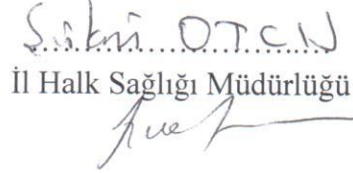 Şükrü OTCU
İl Halk Sağlığı Müdürlüğü